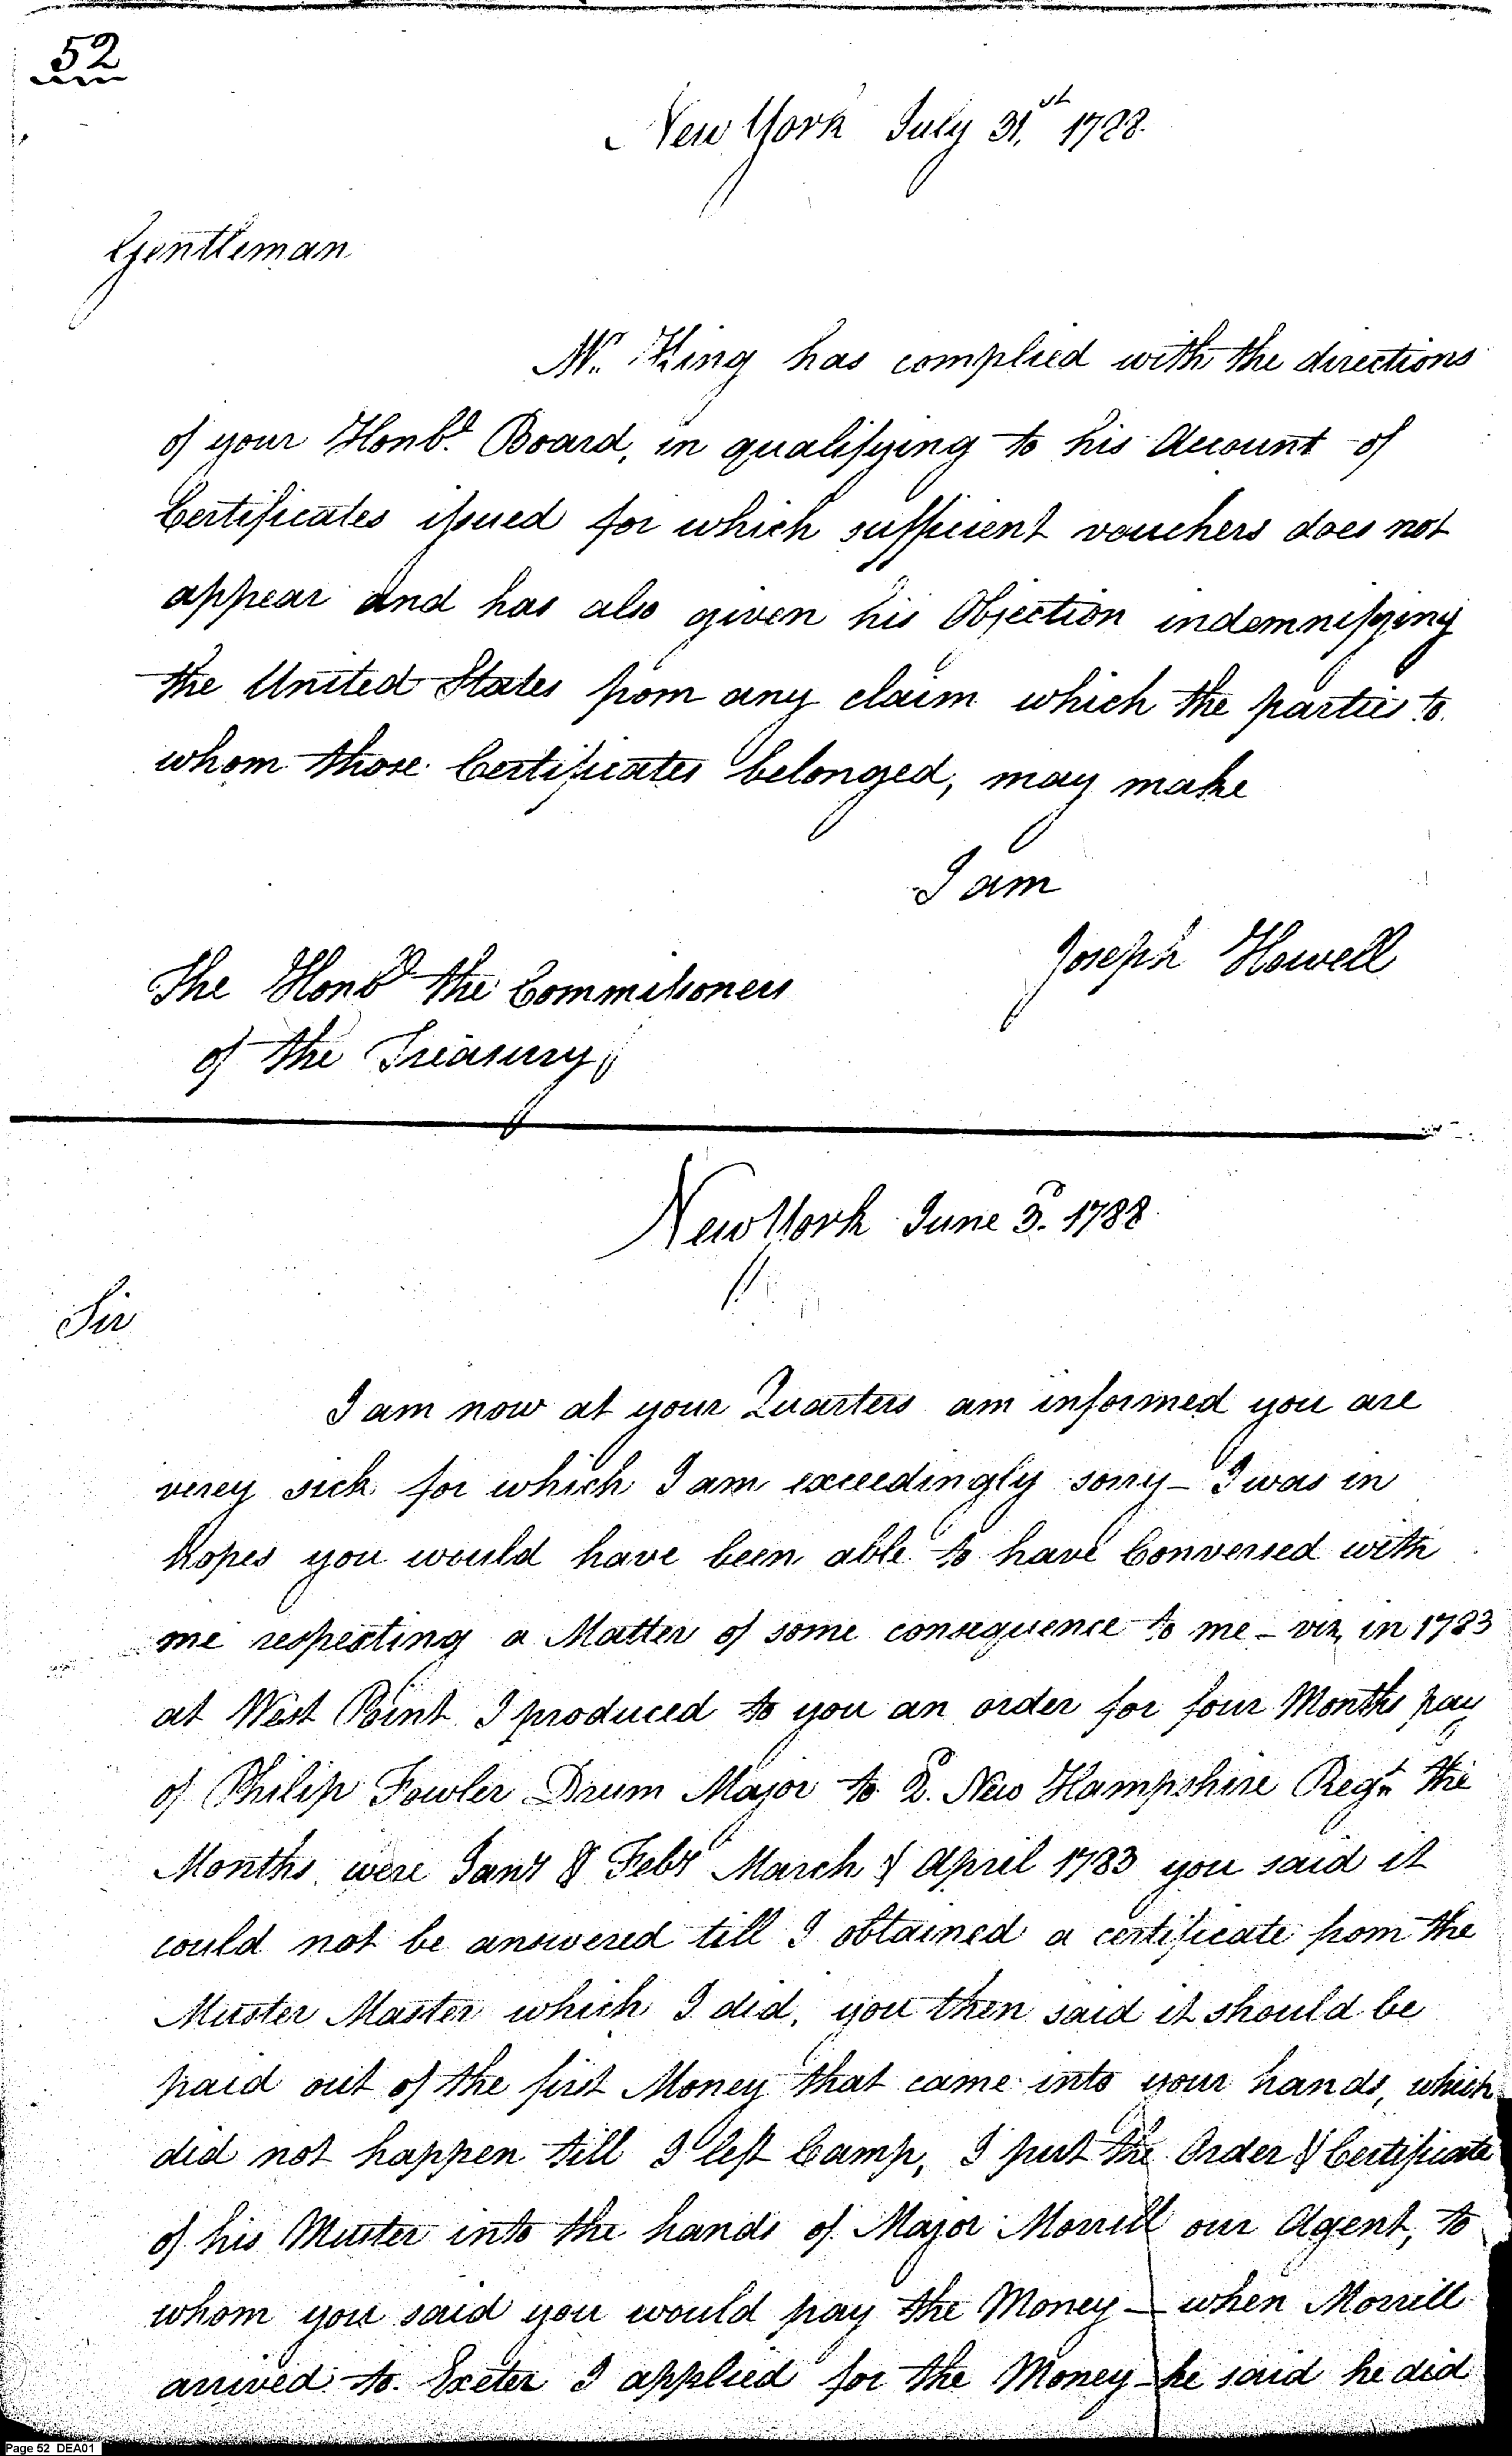 52
New York July 31.st 1788.
Gentleman
Mr. King has complied with the directions
of your Honbl. Board, in qualifying to his Account of
Certificates issued for which sufficient vouchers does not
appear and has also given his Objection indemnifying
the United States from any claim which the parties to
whom those Certificates belonged, may make
I am
Joseph Howell
The Honbl the Commissioners
of the Treasury
New York June 3d. 1788
Sir
I am now at your Quarters am informed you are
verey sick for which I am exceedingly sorry – I was in
hopes you would have been able to have Conversed with
me respecting a Matter of some consequence to me – viz, in 1783
at West Point I produced to you an order for four Months pay
of Philip Fowler Drum Major to 2d. New Hampshire Regt. the
Months were Jany & Feby March & April 1783 you said it
could not be answered till I obtained a certificate from the
Muster Master which I did, you then said it should be
paid out of the first Money that came into your hands, which
did not happen till I left Camp, I put the Order & Certificate
of his Muster into the hands of Major Morrill our Agent, to
whom you said you would pay the Money – when Morrill
arrived to Exeter I applied for the Money – he said he did
Page 52 DEA01